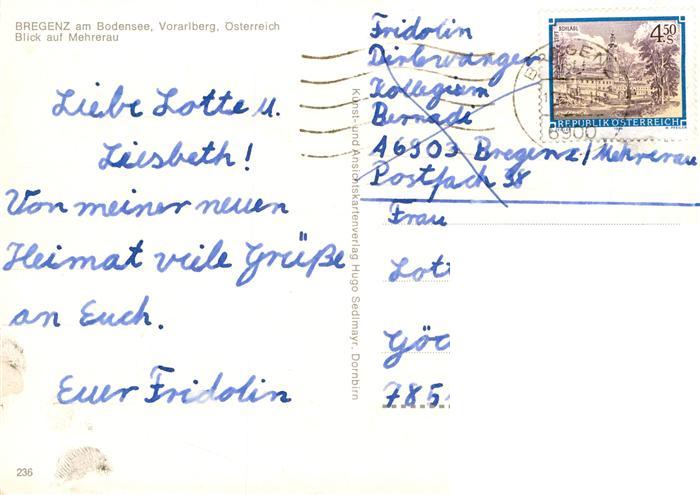 BREGENZ am Bodensee, Vorarlberg, Österreich
Blick auf Mehrerau
Liebe Lotte u.
Liesbeth!
Von meiner neuen
Heimat viele Grüße
an Euch.
Euer Fridolin
236
Kunst- und Ansichtskartenverlag Hugo Sedlmayr, Dornbirn
Fridolin
Dirlewanger
Kollegium
Bernadi
A6903 Bregenz/Mehrerau
Postfach 38
Frau
Lot
Göc
785
STIFT SCHLÄGL
4.50 S
REPUBLIK ÖSTERREICH
BREGENZ
6900